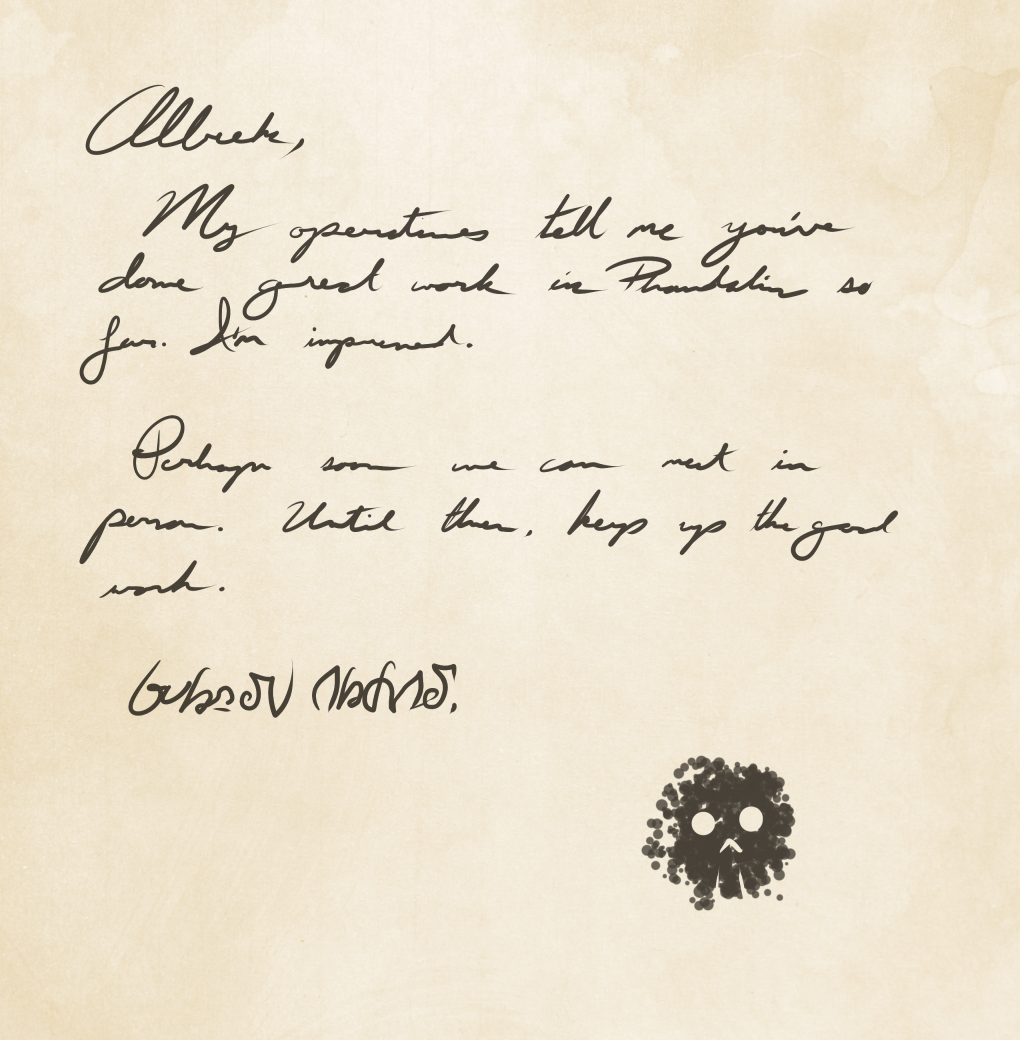 Albrek,
My operatives tell me you've
done great work in Phandalin so
far. I'm impressed.
Perhaps soon we can meet in
person. Until then, keep up the good
work.